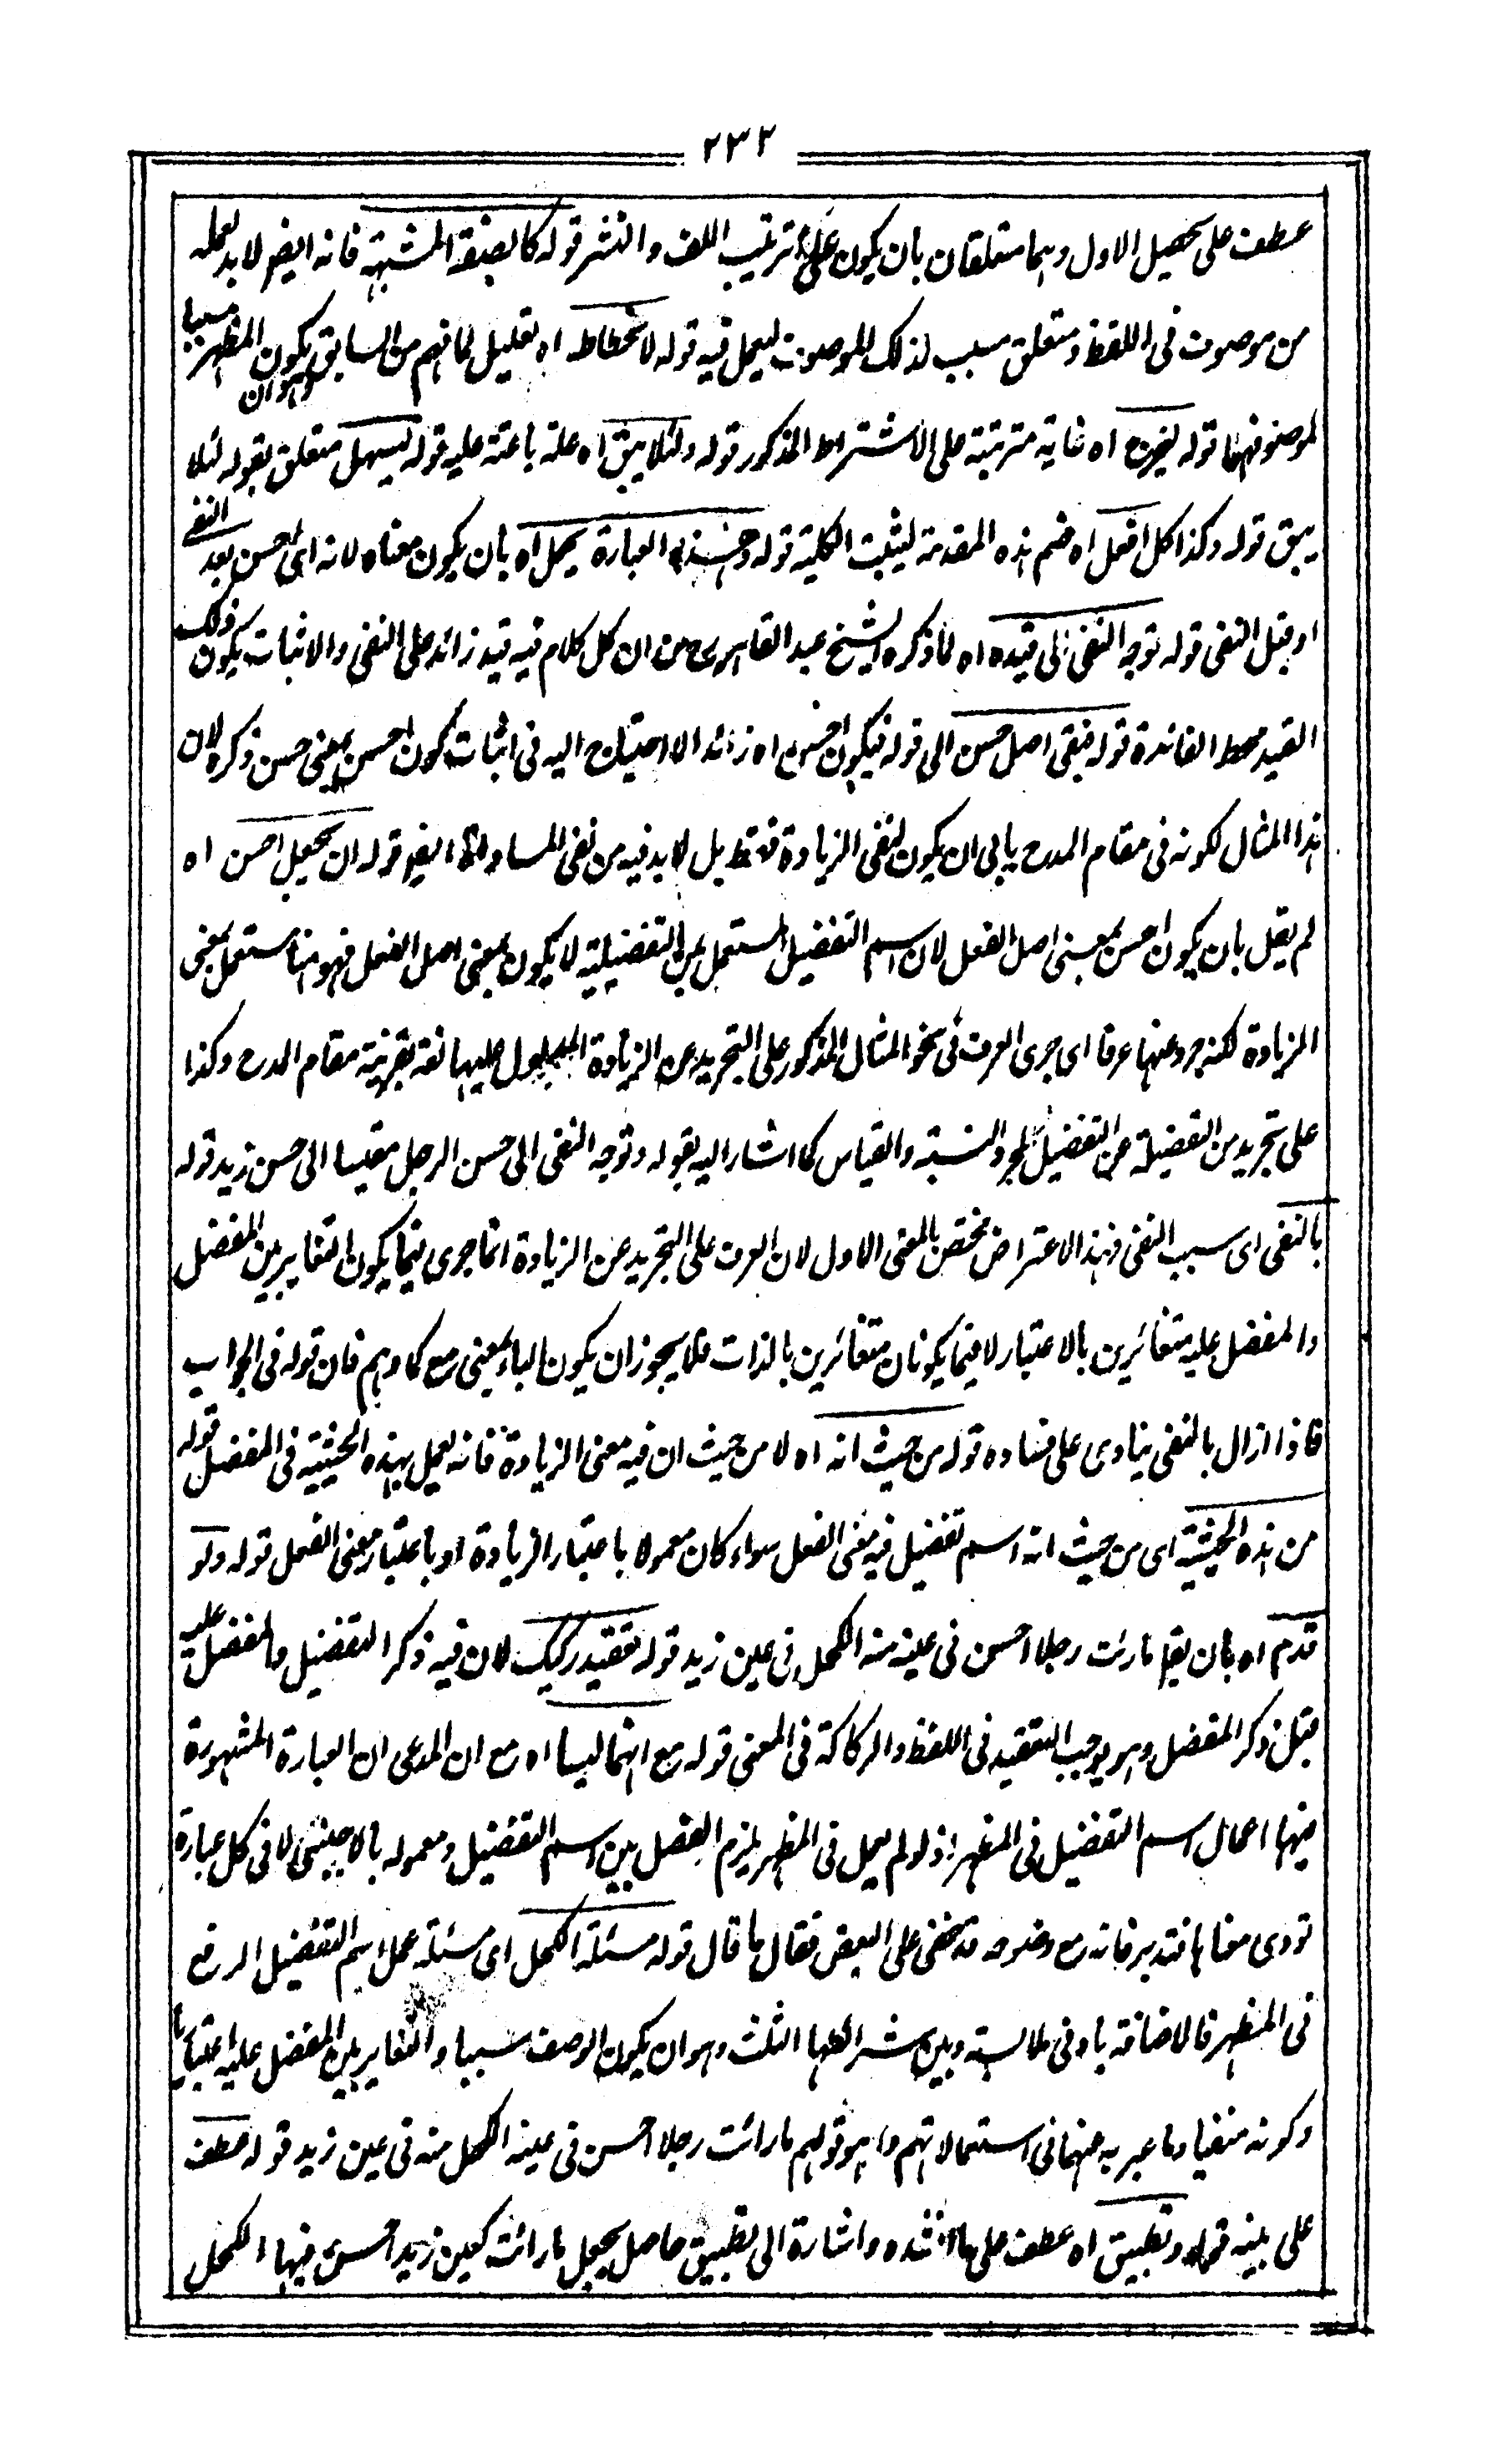 ٢٣٢
عطف على تحصيل الاول وهما متعلقان بان يكون على ترتيب اللف والنشر قوله كالصفة المشبهة فانه ايضا لابد لعمله
من موصوف فى اللفظ ومتعلق مسبب لذلك الموصوف ليعمل فيه قوله لانحطاط اه تعليل لما فهم من السابق وهو ان يكون المظهر سببا
لموصوفها قوله ليخرج اه غاية مترتبة على الاشتراط المذكور قوله ولئلا يبق اه علة باعثة عليه قوله ليسهل متعلق بقوله لئلا
يبق قوله وكذا كل افعل اه ضم هذه المقدمة ليثبت الكلية قوله وحينئذ العبارة يحمل اه بان يكون معناه لانه اى احسن بعد النفى
او قبل النفى قوله توجه النفى الى قيده اه لما ذكره الشيخ عبد القاهر من ان كل كلام فيه قيد زائد على النفى والاثبات يكون ذلك
القيد محط الفائدة قوله فبقى اصل حسن الى قوله فيكون احسن اه زائد الا احتياج اليه فى اثبات كون احسن بمعنى حسن ذكره لان
هذا المثال لكونه فى مقام المدح يابى ان يكون لنفى الزيادة فقط بل لابد فيه من نفى المساواة ايضا قوله ان يجعل احسن اه
لم يقل بان يكون احسن بمعنى اصل الفعل لان اسم التفضيل المستعمل بمن التفضيلية لا يكون بمعنى اصل الفعل فهو هنا مستعمل بمعنى
الزيادة لكنه جرد عنها عرفا اى جرى العرف فى نحو المثال المذكور على التجريد عن الزيادة المدلول عليها لغة بقرينة مقام المدح وكذا
على تجريد من التفضيلية عن التفضيل لمجرد النسبة والقياس كما اشار اليه بقوله وتوجه النفى الى حسن الرجل مقيسا الى حسن زيد قوله
بالنفى اى سبب النفى فهذا الاعتراض مختص بالمعنى الاول لان العرف على التجريد عن الزيادة انما جرى فيما يكون التغاير بين المفضل
والمفضل عليه متغائرين بالاعتبار لا فيما يكونان متغائرين بالذات فلا يجوز ان يكون الباء بمعنى مع كما وهم فان قوله فى الجواب
فاذا زال بالنفى ينادى على فساده قوله من حيث انه اه لا من حيث ان فيه معنى الزيادة فانه يعمل بهذه الحيثية فى المفضل قوله
من هذه الحيثية اى من حيث انه اسم تفضيل فيه معنى الفعل سواء كان معمولا باعتبار الزيادة او باعتبار معنى الفعل قوله ولو
قدم اه بان يقم ما رأت رجلا احسن فى عينه منه الكحل فى عين زيد قوله تعقيد ركيك لان فيه ذكر التفضيل والمفضل عليه
قبل ذكر المفضل وهو يوجب التعقيد فى اللفظ والركاكة فى المعنى قوله مع انهما ليسا اه مع ان المدعى ان العبارة المشهورة
فيها اعمال اسم التفضيل فى المظهر اذ لو لم يعمل فى المظهر يلزم الفصل بين اسم التفضيل ومعموله بالاجنبى لا فى كل عبارة
تودى معناها فتدبر فانه مع وضوحه قد خفى على البعض فقال ما قال قوله مسئلة الكحل اى مسئلة عمل اسم التفضيل الرفع
فى المظهر فالاضافة بادنى ملابسة وبين شرائطها الثلث وهو ان يكون الوصف سببيا والتغاير بين المفضل عليه اعتباريا
وكونه منفيا وما عبر به عنها فى استعمالاتهم واهو قولهم ما رائت رجلا احسن فى عينه الكحل منه فى عين زيد قوله عطف
على بينه قوله وتطبيق اه عطف على ما انشده واشارة الى تطبيق حاصل يجعل ما رائت كعين زيد احسن فيها الكحل